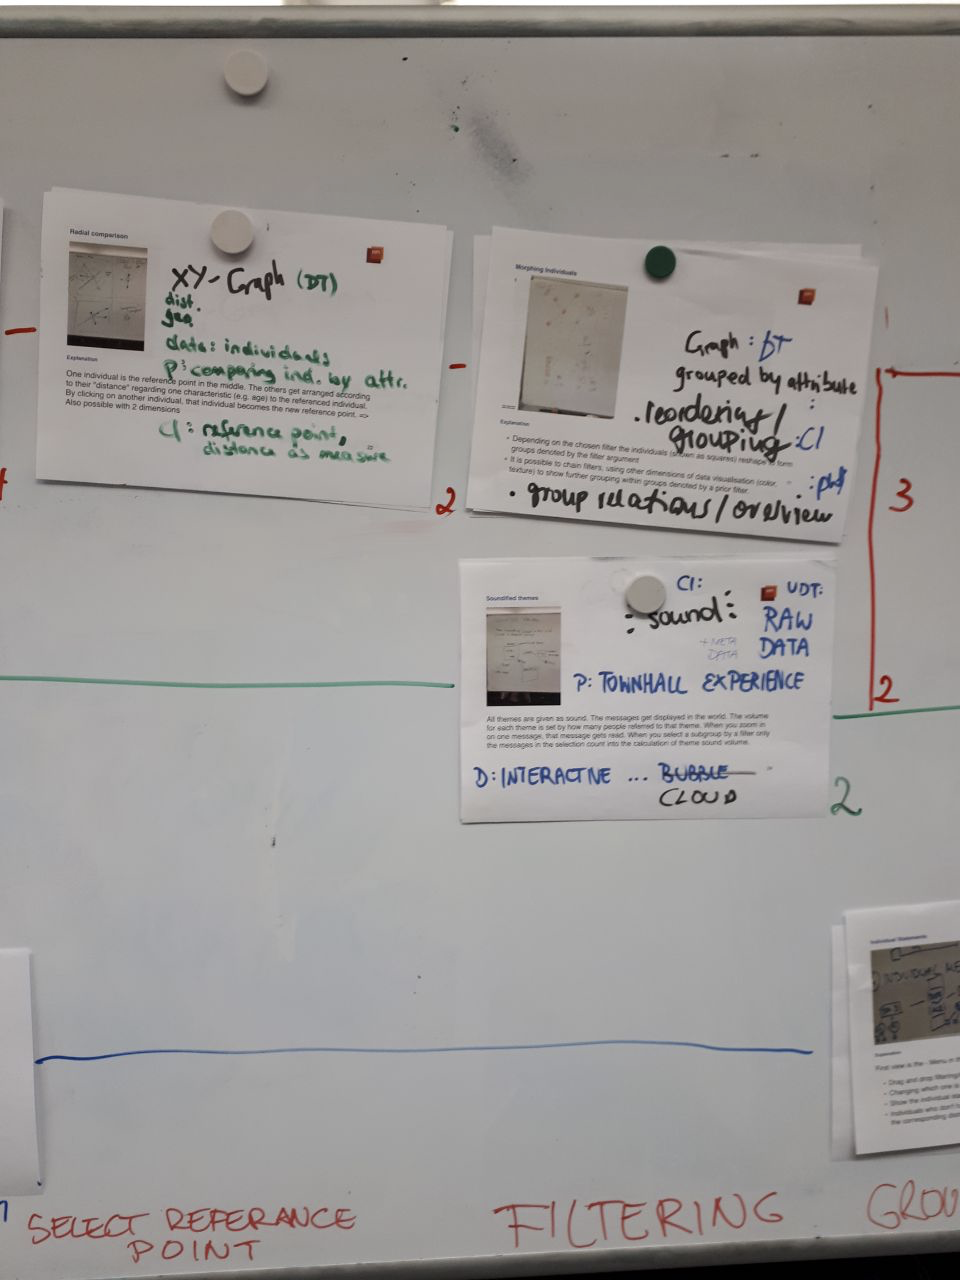 Radial comparison
XY-Graph (DT)
dist.
geo
data: individuals
P: comparing ind. by attr.
Explanation
One individual is the reference point in the middle. The others get arranged according
to their "distance" regarding one characteristic (e.g. age) to the referenced individual.
By clicking on another individual, that individual becomes the new reference point. =>
Also possible with 2 dimensions
CI: reference point,
distance as measure
2
Morphing Individuals
Graph: DT
grouped by attribute
:
. reordering /
grouping :CI
Explanation
• Depending on the chosen filter the individuals (shown as squares) reshape to form
groups denoted by the filter argument
• It is possible to chain filters, using other dimensions of data visualisation (color,
texture) to show further grouping within groups denoted by a prior filter.
• group relations / overview
3
2
Soundified themes
CI:
: sound :
UDT:
RAW
DATA
+ META
DATA
P: TOWNHALL EXPERIENCE
All themes are given as sound. The messages get displayed in the world. The volume
for each theme is set by how many people referred to that theme. When you zoom in
on one message, that message gets read. When you select a subgroup by a filter only
the messages in the selection count into the calculation of theme sound volume.
D: INTERACTIVE ... BUBBLE
CLOUD
2
Individual Statements
INDIVIDUAL ME
Explanation
First view is the - Menu in th
• Drag and drop filtering/
• Changing which one is
• Show the individual sta
• Individuals who don't h
the corresponding dis
SELECT REFERANCE
POINT
FILTERING
GROU